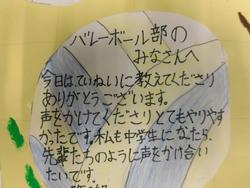 バレーボール部の
みなさんへ
今日はていねいに教えてくださり
ありがとうございます。
声をかけてくださりとてもやりやす
かったです。私も中学生になたら、
先輩たちのように声をかけ合い
たいです。